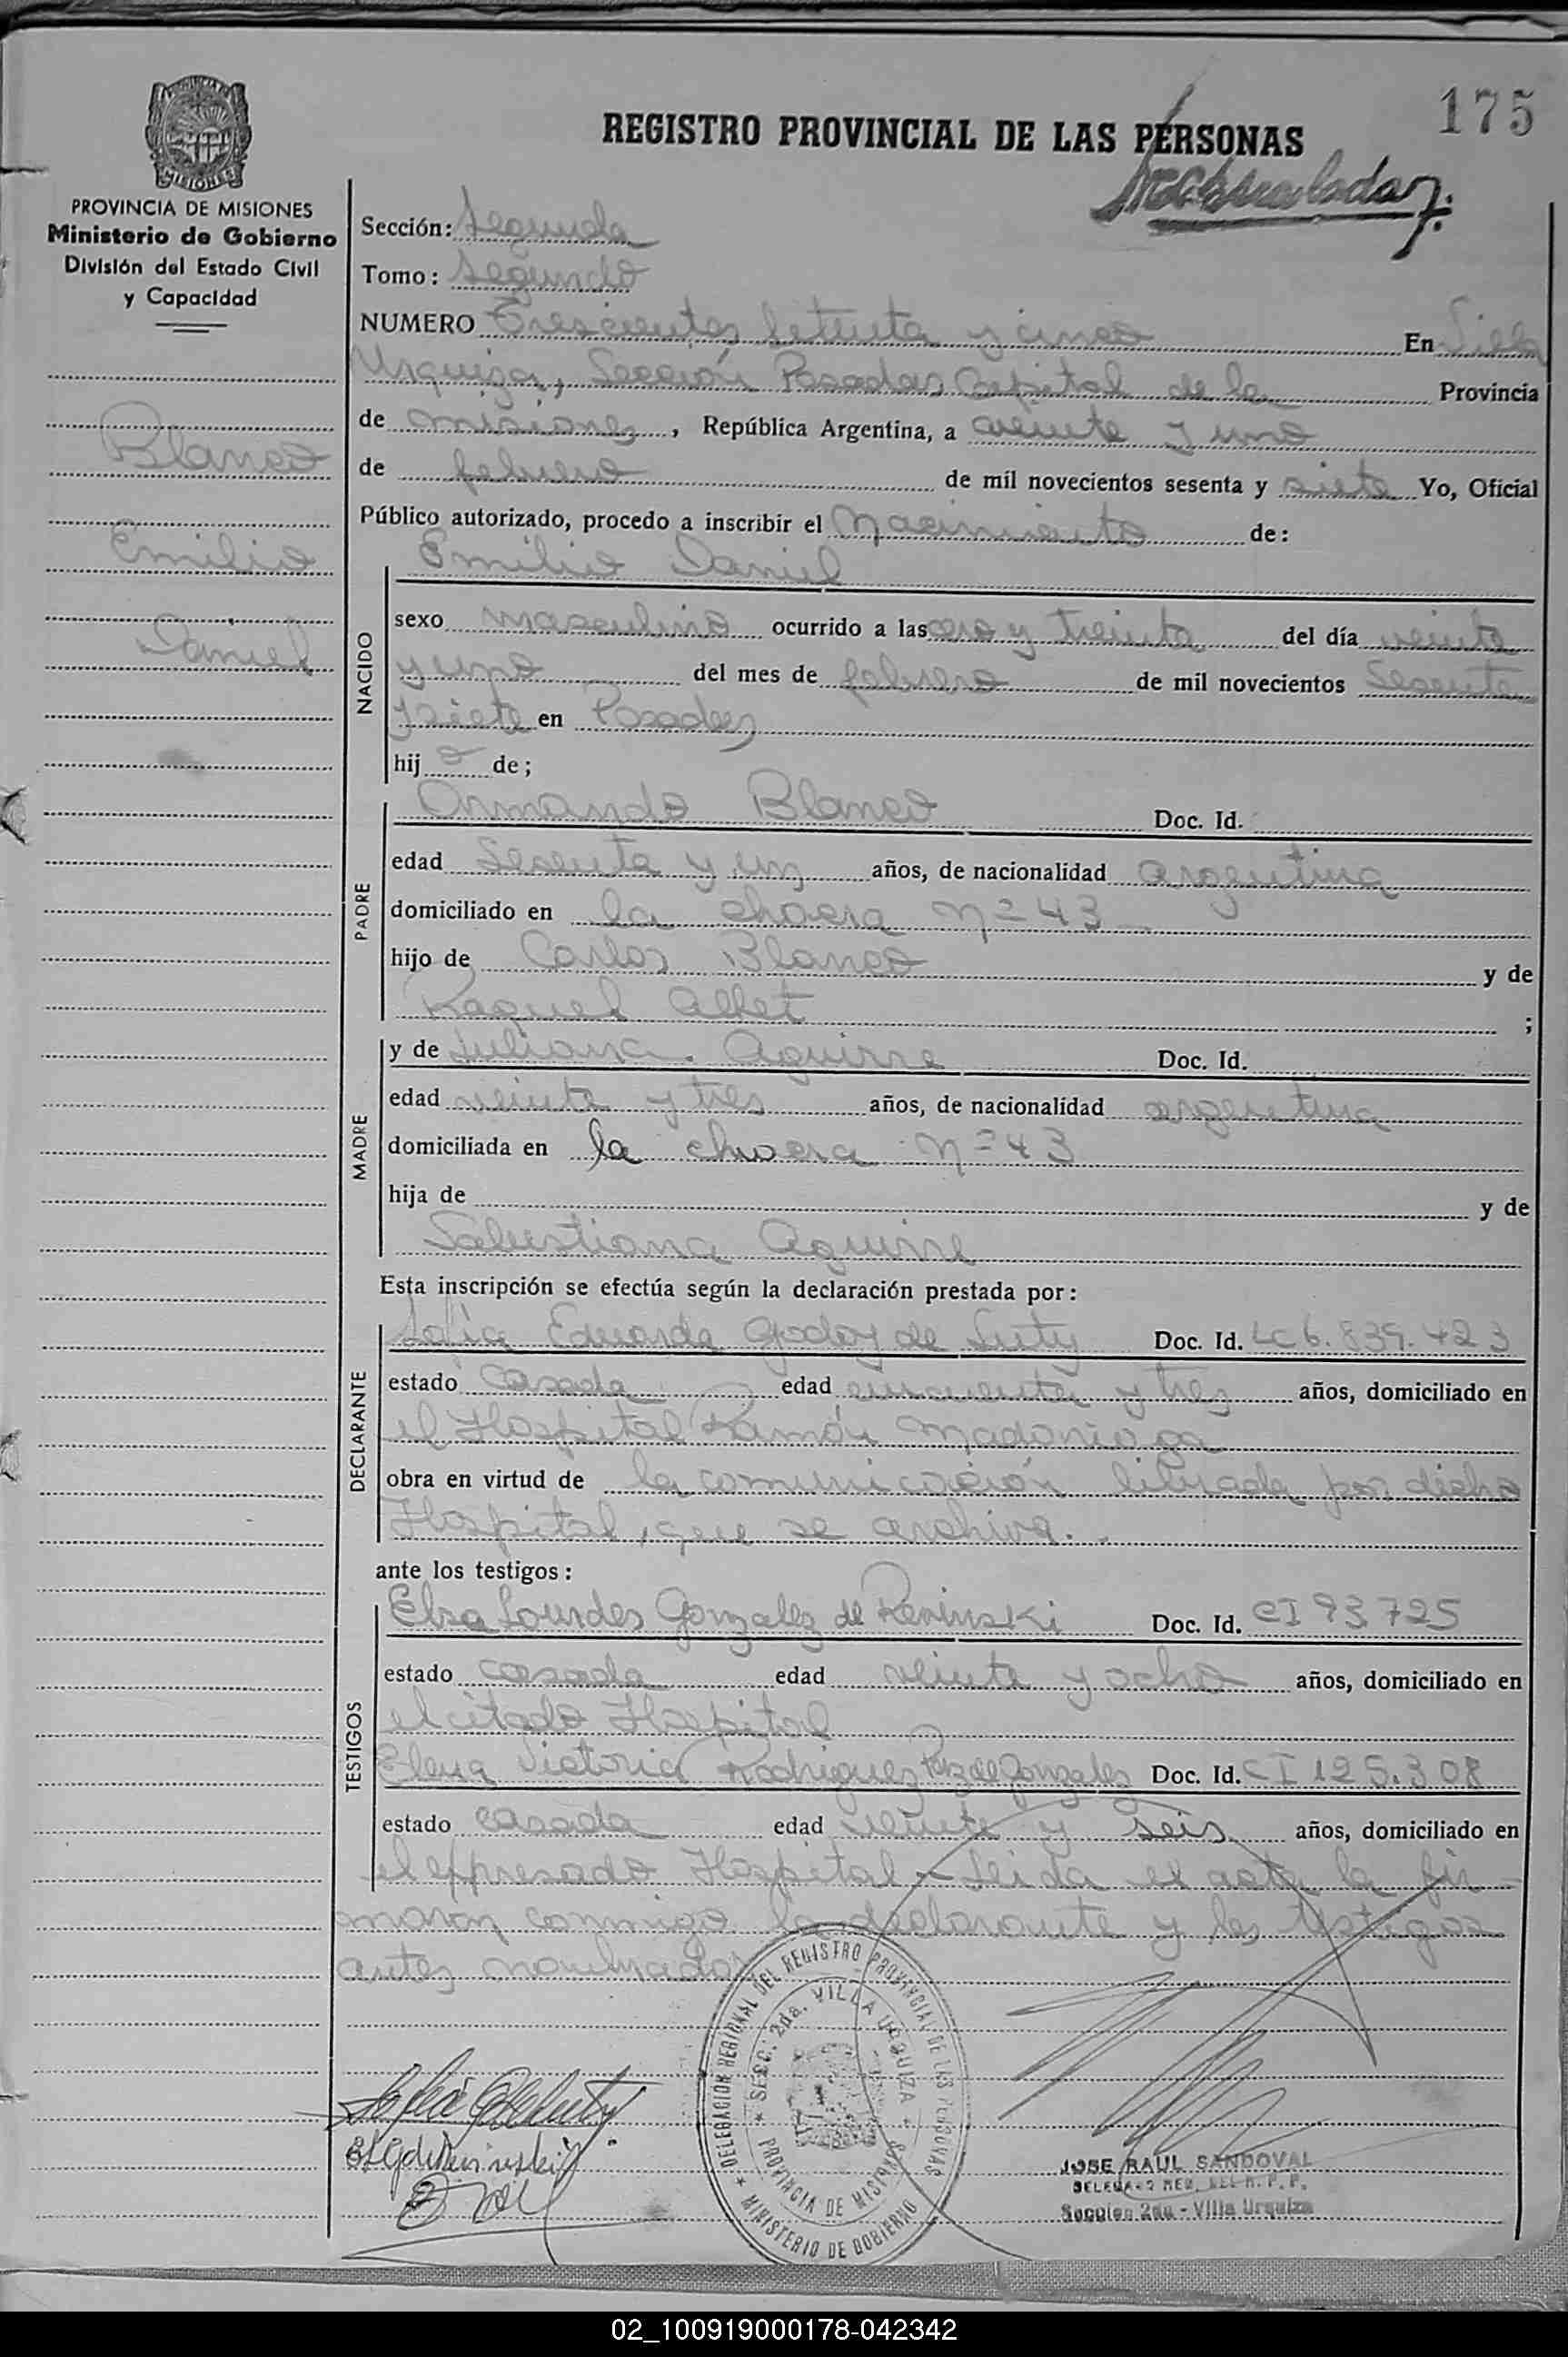 175
REGISTRO PROVINCIAL DE LAS PERSONAS
MISIONES
PROVINCIA DE MISIONES
Ministerio de Gobierno
División del Estado Civil
y Capacidad
Blanco
Emilio
Daniel
Sección: Segunda
Tomo: Segundo
NUMERO Trescientos setenta y cinco En Villa
Urquiza, Sección Posadas, Capital de la Provincia
de Misiones, República Argentina, a veinte y uno
de febrero de mil novecientos sesenta y siete Yo, Oficial
Público autorizado, procedo a inscribir el Nacimiento de:
Emilio Daniel
NACIDO
sexo masculino ocurrido a las cero y treinta del día veinte
y uno del mes de febrero de mil novecientos Sesenta
y siete en Posadas
hij o de;
PADRE
Armando Blanco Doc. Id.
edad Sesenta y un años, de nacionalidad argentina
domiciliado en la chacra Nº 43
hijo de Carlos Blanco y de
Raquel ;
MADRE
y de Juliana Aguirre Doc. Id.
edad veinte y tres años, de nacionalidad argentina
domiciliada en la chacra Nº 43
hija de y de
Sabestiana Aguirre
Esta inscripción se efectúa según la declaración prestada por:
DECLARANTE
Sofia Eduarda Godoy de Doc. Id. LC 6.839.423
estado Casada edad cincuenta y tres años, domiciliado en
el Hospital Ramón Madariaga
obra en virtud de la comunicación librada por dicho
Hospital, que se archiva.
ante los testigos:
TESTIGOS
Elsa Lourdes Gonzalez de Doc. Id. CI 93725
estado casada edad veinte y ocho años, domiciliado en
el citado Hospital
Elena Victoria Rodriguez de Gonzales Doc. Id. CI 125.308
estado casada edad veinte y seis años, domiciliado en
el expresado Hospital - Leida el acta la fir-
maron conmigo la declarante y los testigos
antes nombrados
DELEGACION REGIONAL DEL REGISTRO PROVINCIAL DE LAS PERSONAS
SECC. 2da. VILLA URQUIZA
PROVINCIA DE MISIONES
MINISTERIO DE GOBIERNO
JOSE RAUL SANDOVAL
DELEGADO REG. DEL R. P. P.
Sección 2da - Villa Urquiza
02_100919000178-042342